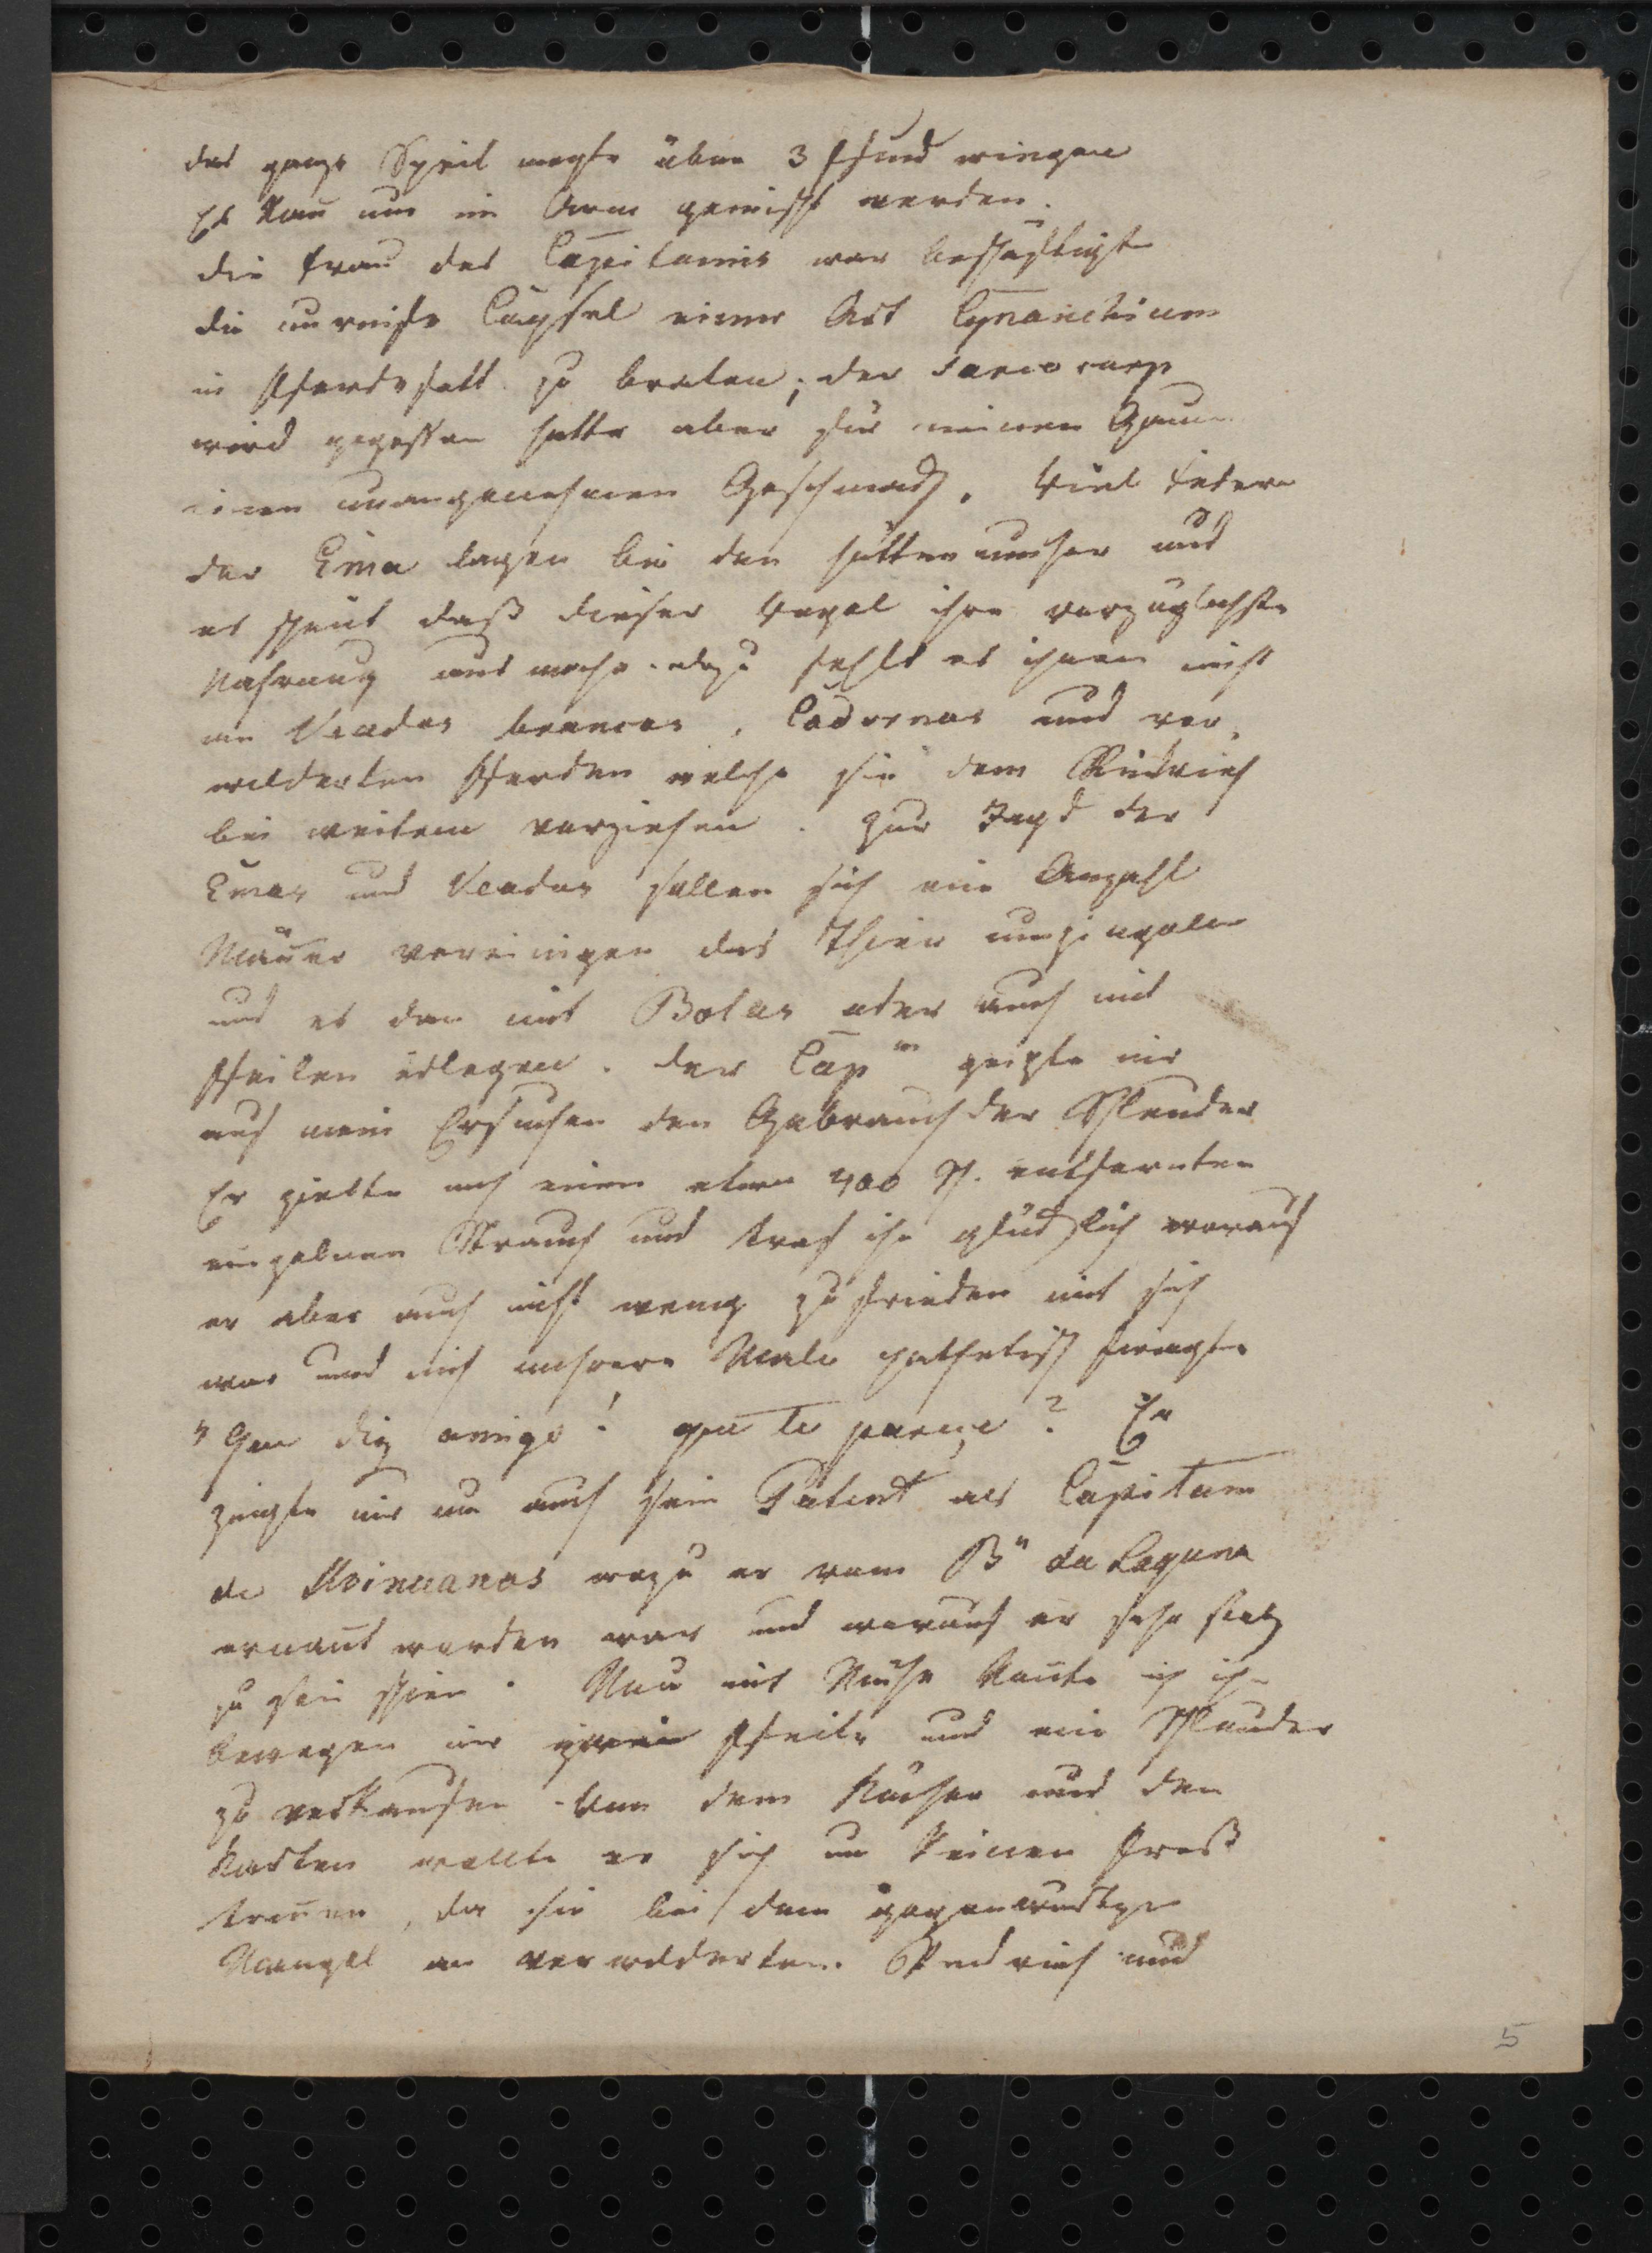 das ganze Spiel mogte über 3 Pfund wiegen
Es kan̅ nur im Arm gemischt werden.
die Frau des Capitains war beschäftigt
die unreife Capsel einer Art Cynanchium
in Pferdefett zu braten; der Sarcocarp
wird gegessen hatte aber für meinen Gaum
einen unangenehmen Geschmack. Viel Federn
der Ema lagen bei den Hütten umher und
es scheint daß dieser Vogel ihre vorzüglichste
Nahrung aus mache. dazu fehlt es ihnen nicht
an Veados brancos, Codornas und ver-
wilderten Pferden welche sie dem Rindvieh
bei weitem vorziehen. Zur Jagd der
Emas und Veados sollen sich eine Anzahl
Mäñer vereinigen das Thier umzingeln
und es dan mit Bolas oder auch mit
Pfeilen erlegen. der Cap^m zeigte mir
auf mein Ersuchen den Gebrauch der Schleuder
Er zielte nach einem etwa 400 S. entfernten
einzelnen Strauch und traf ihn glücklich worauf
er aber auch nicht wenig zufrieden mit sich
war und mich mehrere Male pathetisch fragte
"Que diz amigo! que te parece? Er
zeigte mir nun auch sein Patent als Capitam
de Minuanos wozu er vom B^n da Laguna
ernan̅t worden war und worauf er sehr stolz
zu sein schien. Nur mit Mühe kon̅te ich ihn
bewegen mir zwei Pfeile und eine Schleuder
zu verkaufen. Von dem Köcher und den
wollte er sich um keinen Preiß
tren̅en, da sie bei dem gegenwärtigen
Mangel an verwildertem Rindvieh und
5